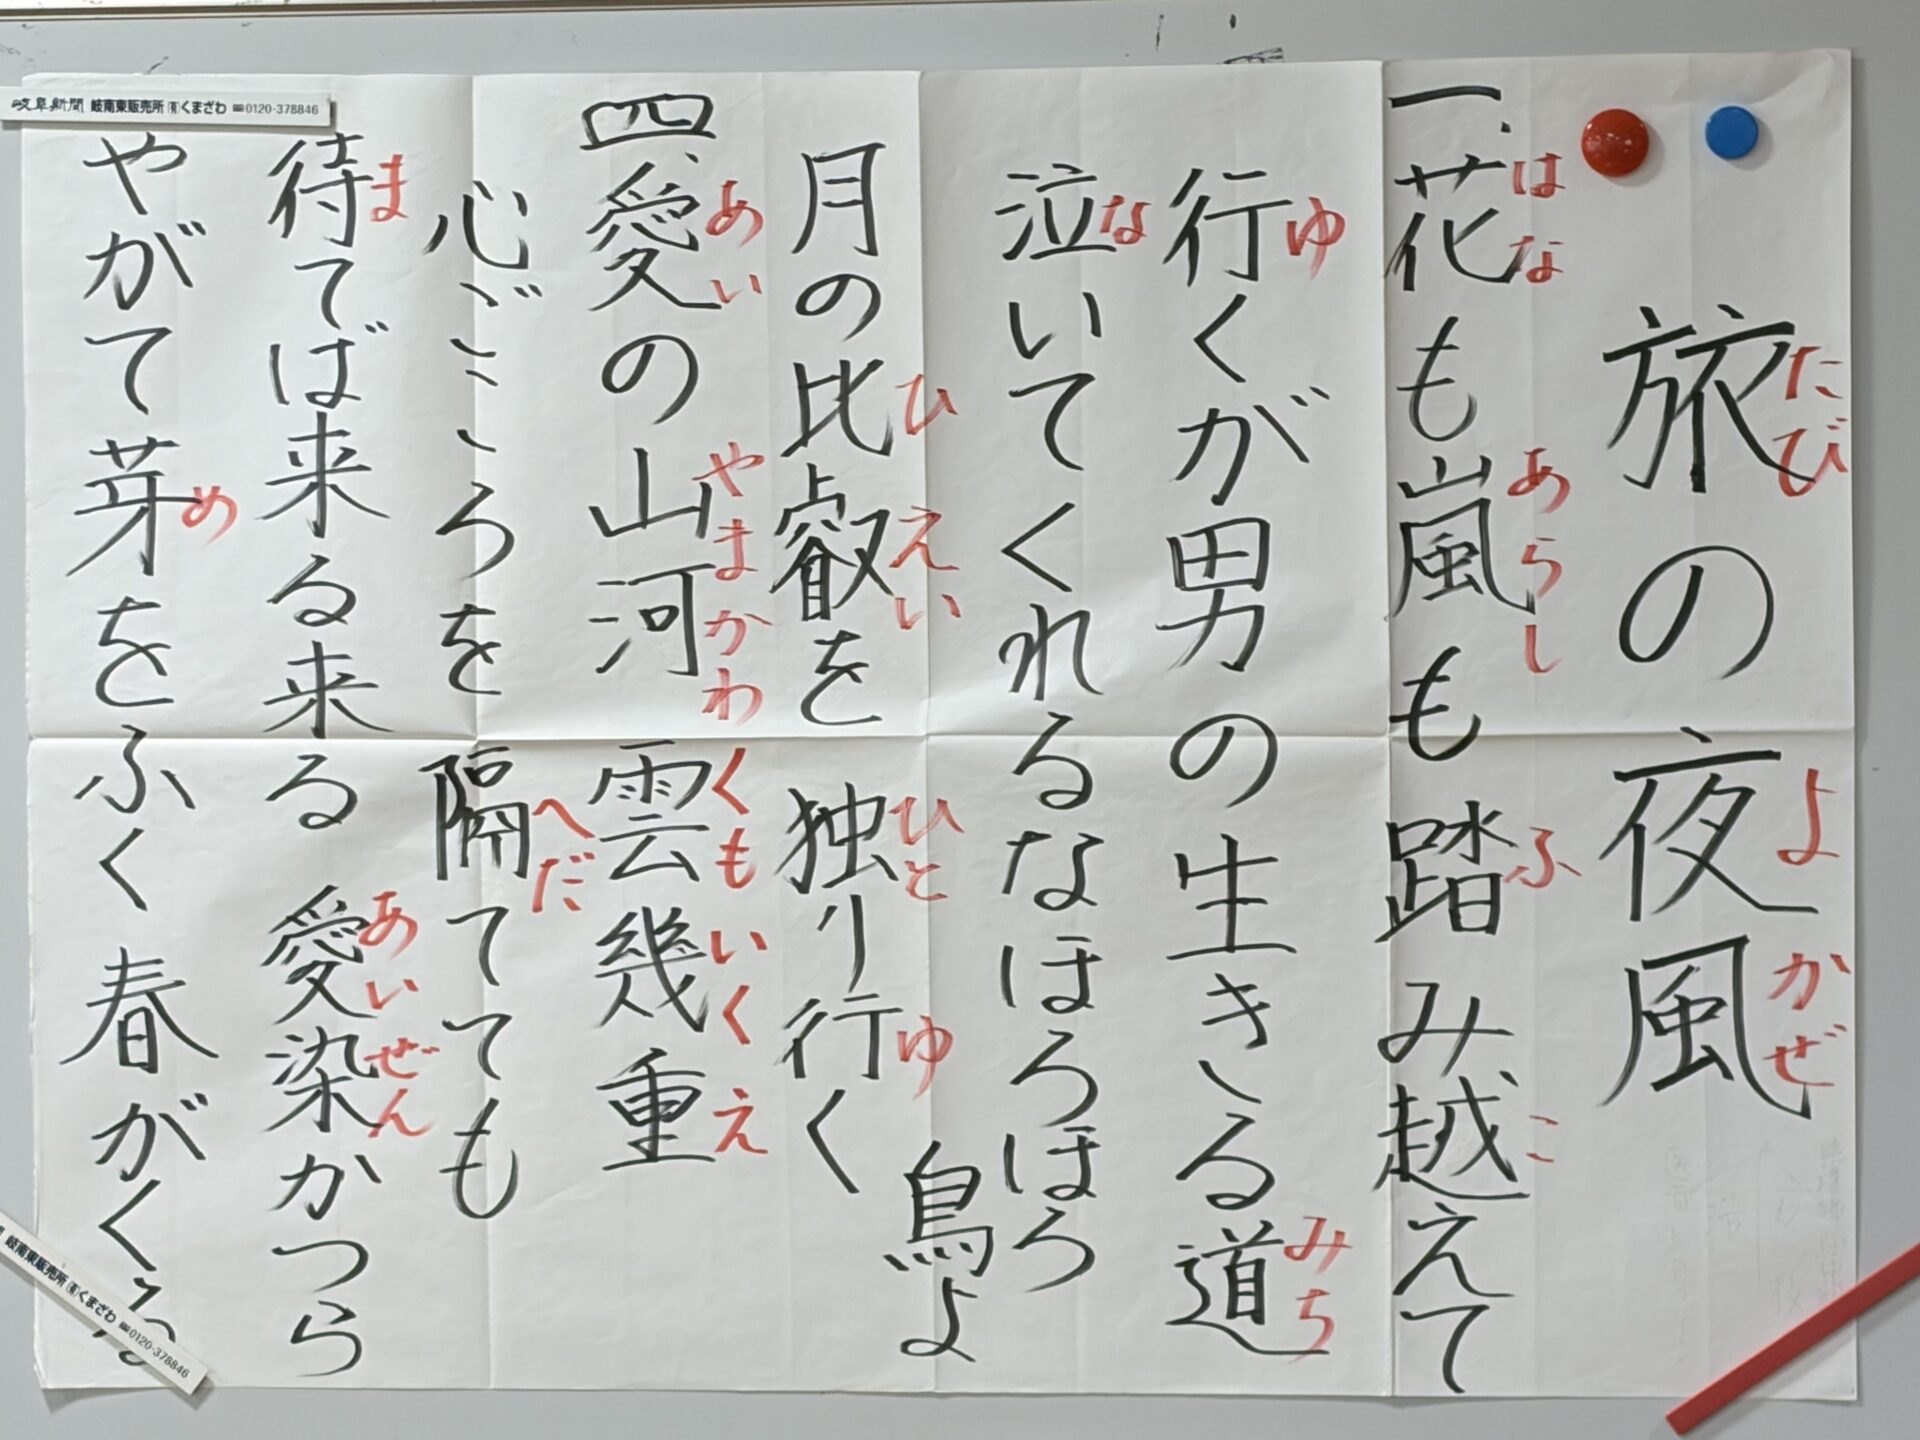 旅の夜風
たび よ かぜ
一、花も嵐も踏み越えて
はな あらし ふ こ
行くが男の生きる道
ゆ みち
泣いてくれるなほろほろ鳥よ
な
月の比叡を 独り行く
ひ えい ひと ゆ
四、愛の山河 雲幾重
あい やまかわ くもいくえ
心ごころを 隔てても
へだ
待てば来る来る 愛染かつら
ま あいぜん
やがて芽をふく 春がくる
め
岐阜新聞 岐南東販売所 ㈲くまざわ ☎0120-378846
岐南東販売所 ㈲くまざわ ☎0120-378846